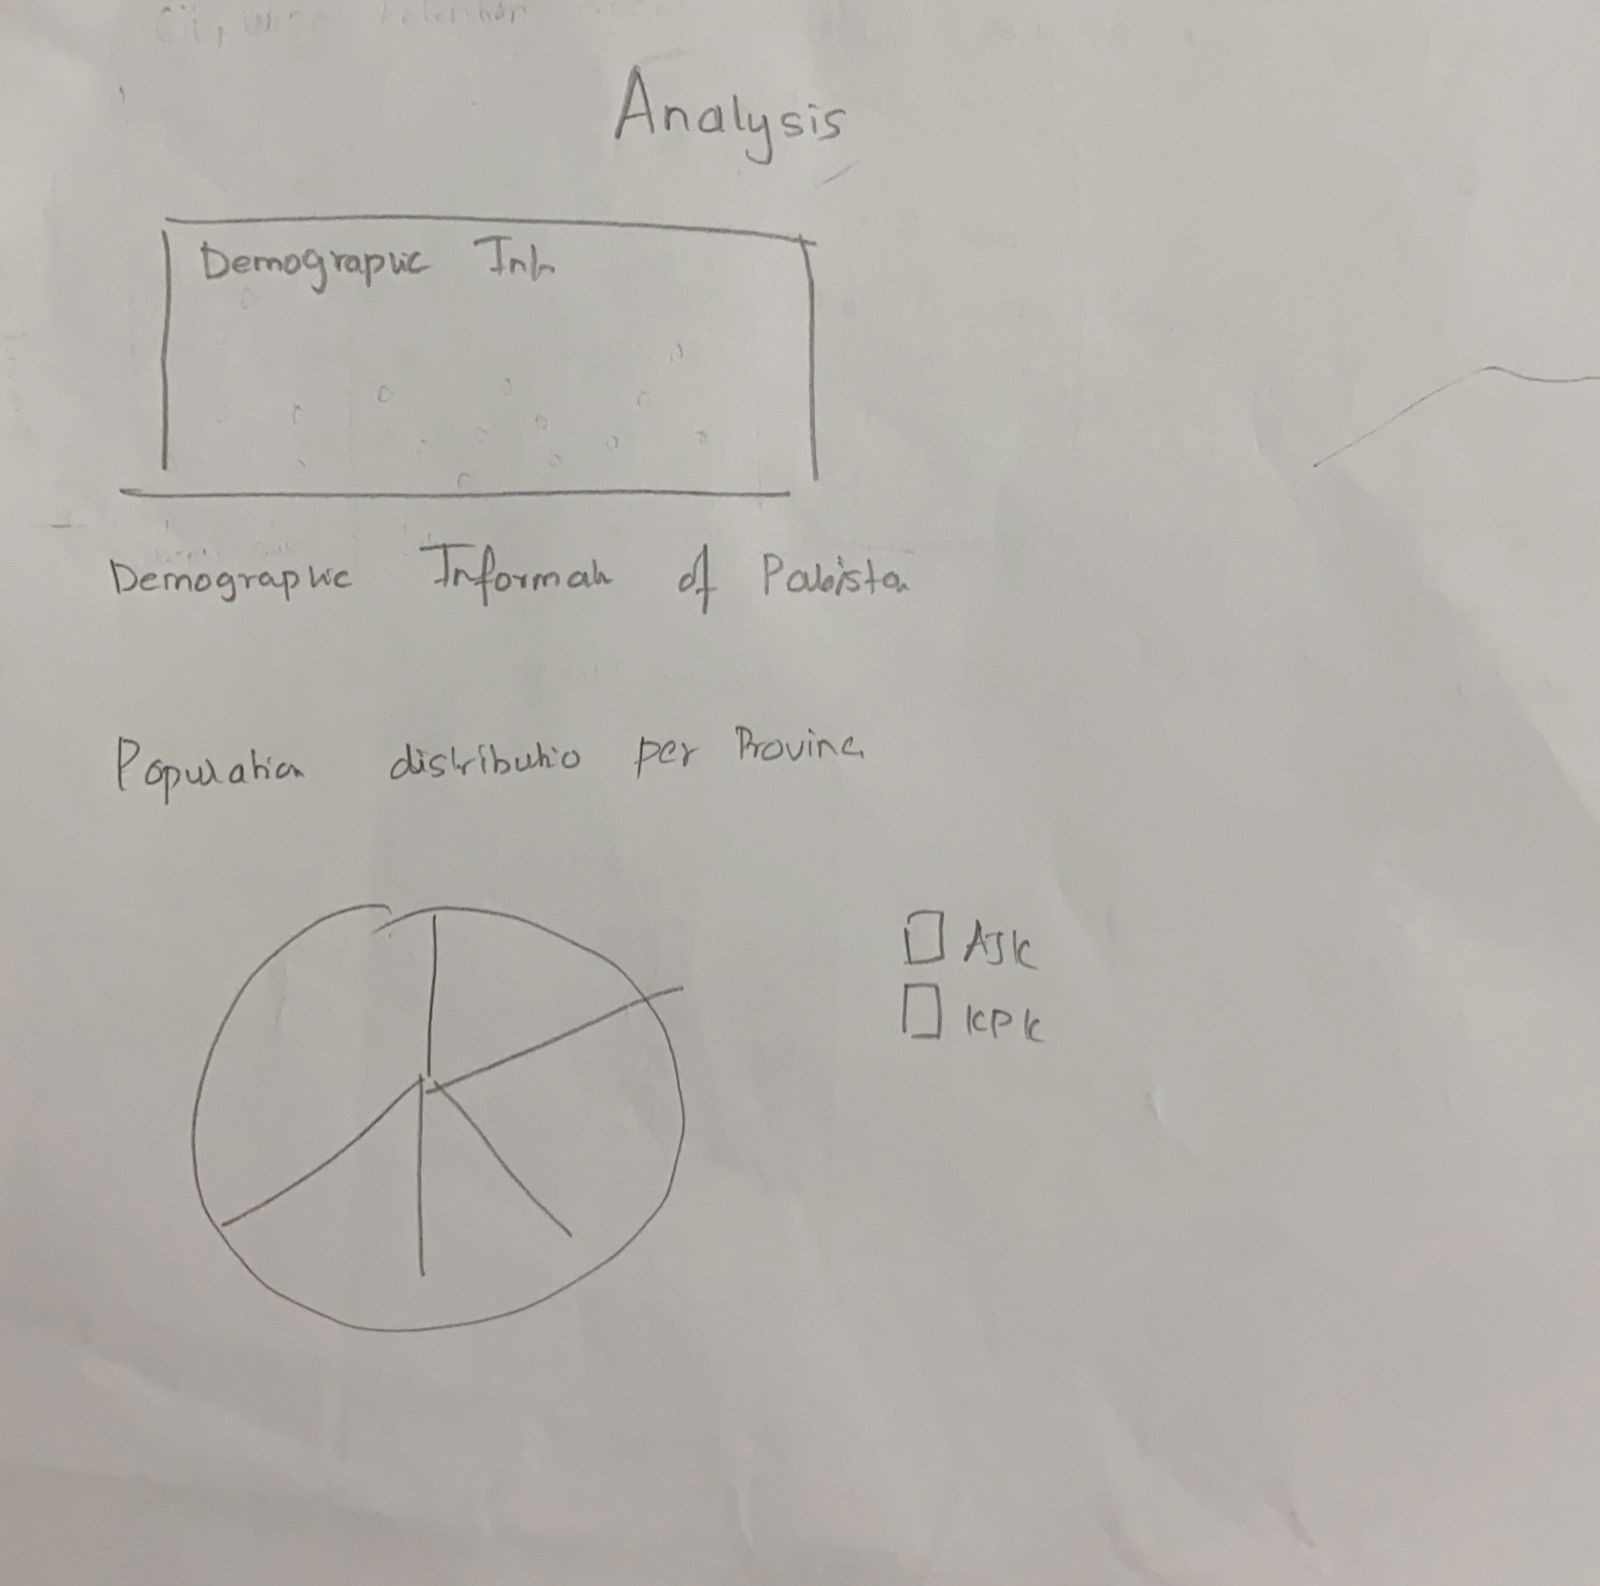 Analysis
Demographic Inf
Demographic Informat of Pakista
Population distributio per Provinc
AJK
KPK